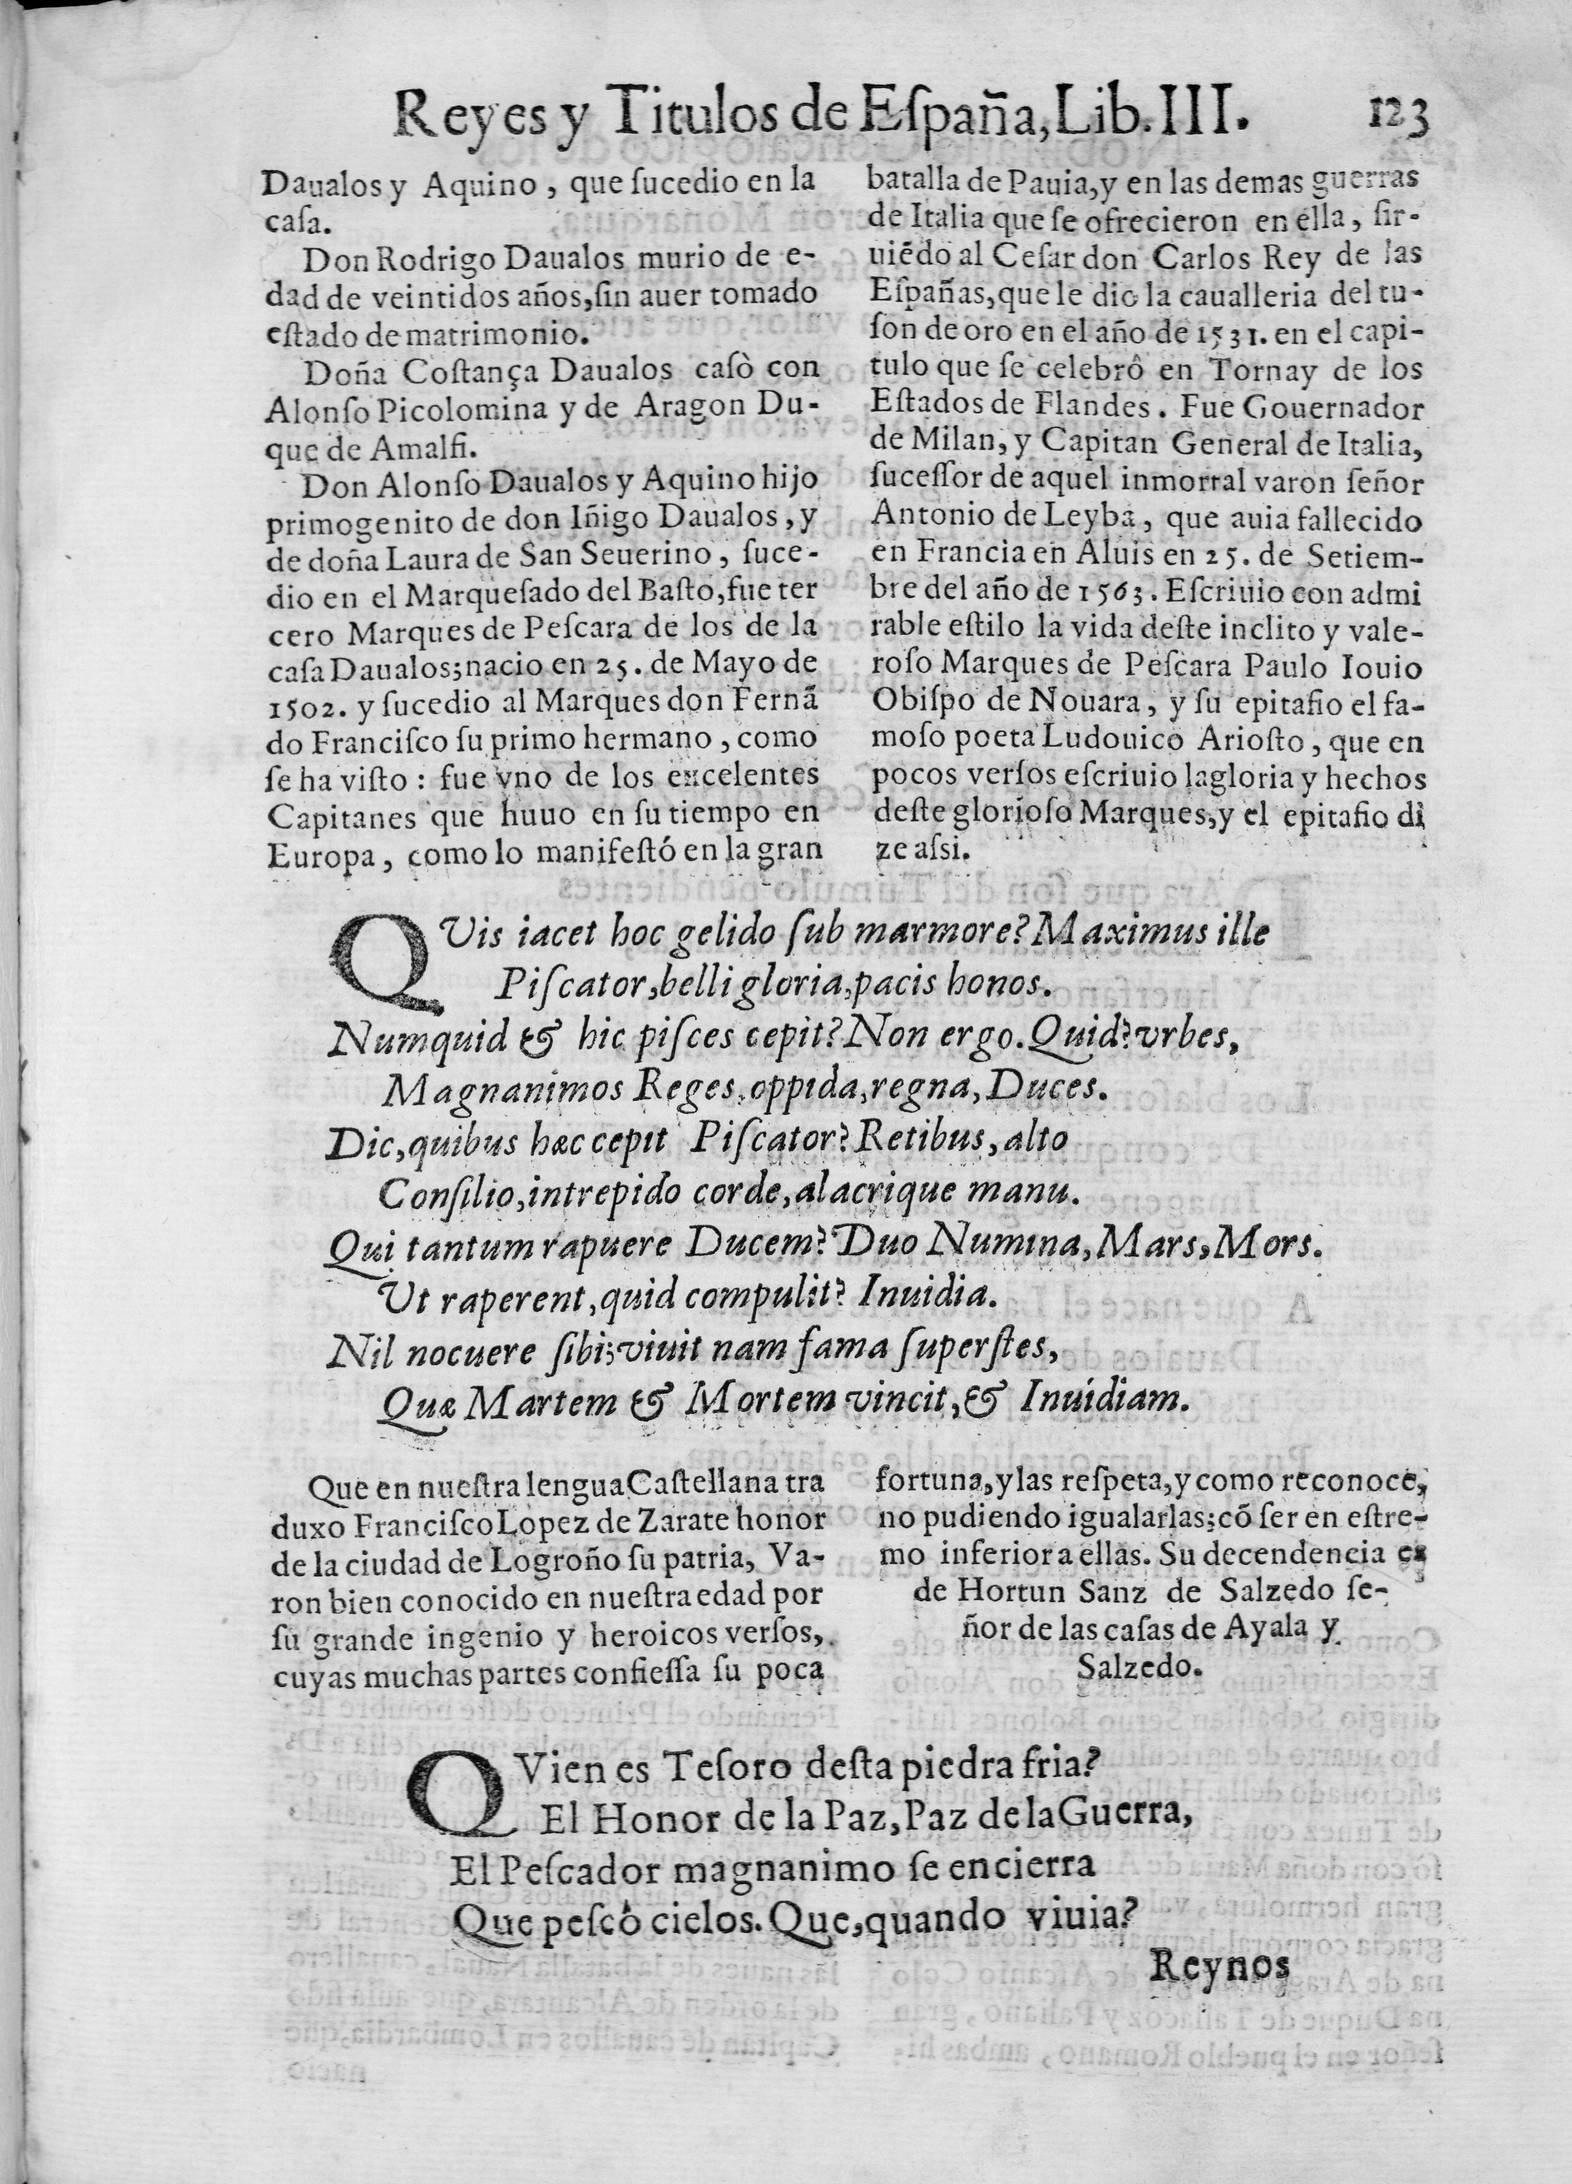 Reyes y Titulos de Eſpaña, Lib. III. 123
Daualos y Aquino, que ſucedio en la
caſa.
Don Rodrigo Daualos murio de e-
dad de veintidos años, ſin auer tomado
eſtado de matrimonio.
Doña Coſtança Daualos caſò con
Alonſo Picolomina y de Aragon Du-
que de Amalfi.
Don Alonſo Daualos y Aquino hijo
primogenito de don Iñigo Daualos, y
de doña Laura de San Seuerino, ſuce-
dio en el Marqueſado del Baſto, fue ter
cero Marques de Peſcara de los de la
caſa Daualos; nacio en 25. de Mayo de
1502. y ſucedio al Marques don Fernã
do Franciſco ſu primo hermano, como
ſe ha viſto: fue vno de los excelentes
Capitanes que huuo en ſu tiempo en
Europa, como lo manifeſtó en la gran
batalla de Pauia, y en las demas guerras
de Italia que ſe ofrecieron en ella, ſir-
uiẽdo al Ceſar don Carlos Rey de las
Eſpañas, que le dio la caualleria del tu-
ſon de oro en el año de 1531. en el capi-
tulo que ſe celebrô en Tornay de los
Eſtados de Flandes. Fue Gouernador
de Milan, y Capitan General de Italia,
ſuceſſor de aquel inmortal varon ſeñor
Antonio de Leyba, que auia fallecido
en Francia en Aluis en 25. de Setiem-
bre del año de 1563. Eſcriuio con admi
rable eſtilo la vida deſte inclito y vale-
roſo Marques de Peſcara Paulo Iouio
Obiſpo de Nouara, y ſu epitafio el fa-
moſo poeta Ludouico Arioſto, que en
pocos verſos eſcriuio la gloria y hechos
deſte glorioſo Marques, y el epitafio di
ze aſsi.
QVis iacet hoc gelido ſub marmore? Maximus ille
Piſcator, belli gloria, pacis honos.
Numquid & hic piſces cepit? Non ergo. Quid? vrbes,
Magnanimos Reges, oppida, regna, Duces.
Dic, quibus hæc cepit Piſcator? Retibus, alto
Conſilio, intrepido corde, alacrique manu.
Qui tantum rapuere Ducem? Duo Numina, Mars, Mors.
Ut raperent, quid compulit? Inuidia.
Nil nocuere ſibi; viuit nam fama ſuperſtes,
Quæ Martem & Mortem vincit, & Inuidiam.
Que en nueſtra lengua Caſtellana tra
duxo Franciſco Lopez de Zarate honor
de la ciudad de Logroño ſu patria, Va-
ron bien conocido en nueſtra edad por
ſu grande ingenio y heroicos verſos,
cuyas muchas partes confieſſa ſu poca
fortuna, y las reſpeta, y como reconoce,
no pudiendo igualarlas; cõ ſer en eſtre-
mo inferior a ellas. Su decendencia es
de Hortun Sanz de Salzedo ſe-
ñor de las caſas de Ayala y
Salzedo.
QVien es Teſoro deſta piedra fria?
El Honor de la Paz, Paz de la Guerra,
El Peſcador magnanimo ſe encierra
Que peſcò cielos. Que, quando viuia?
Reynos